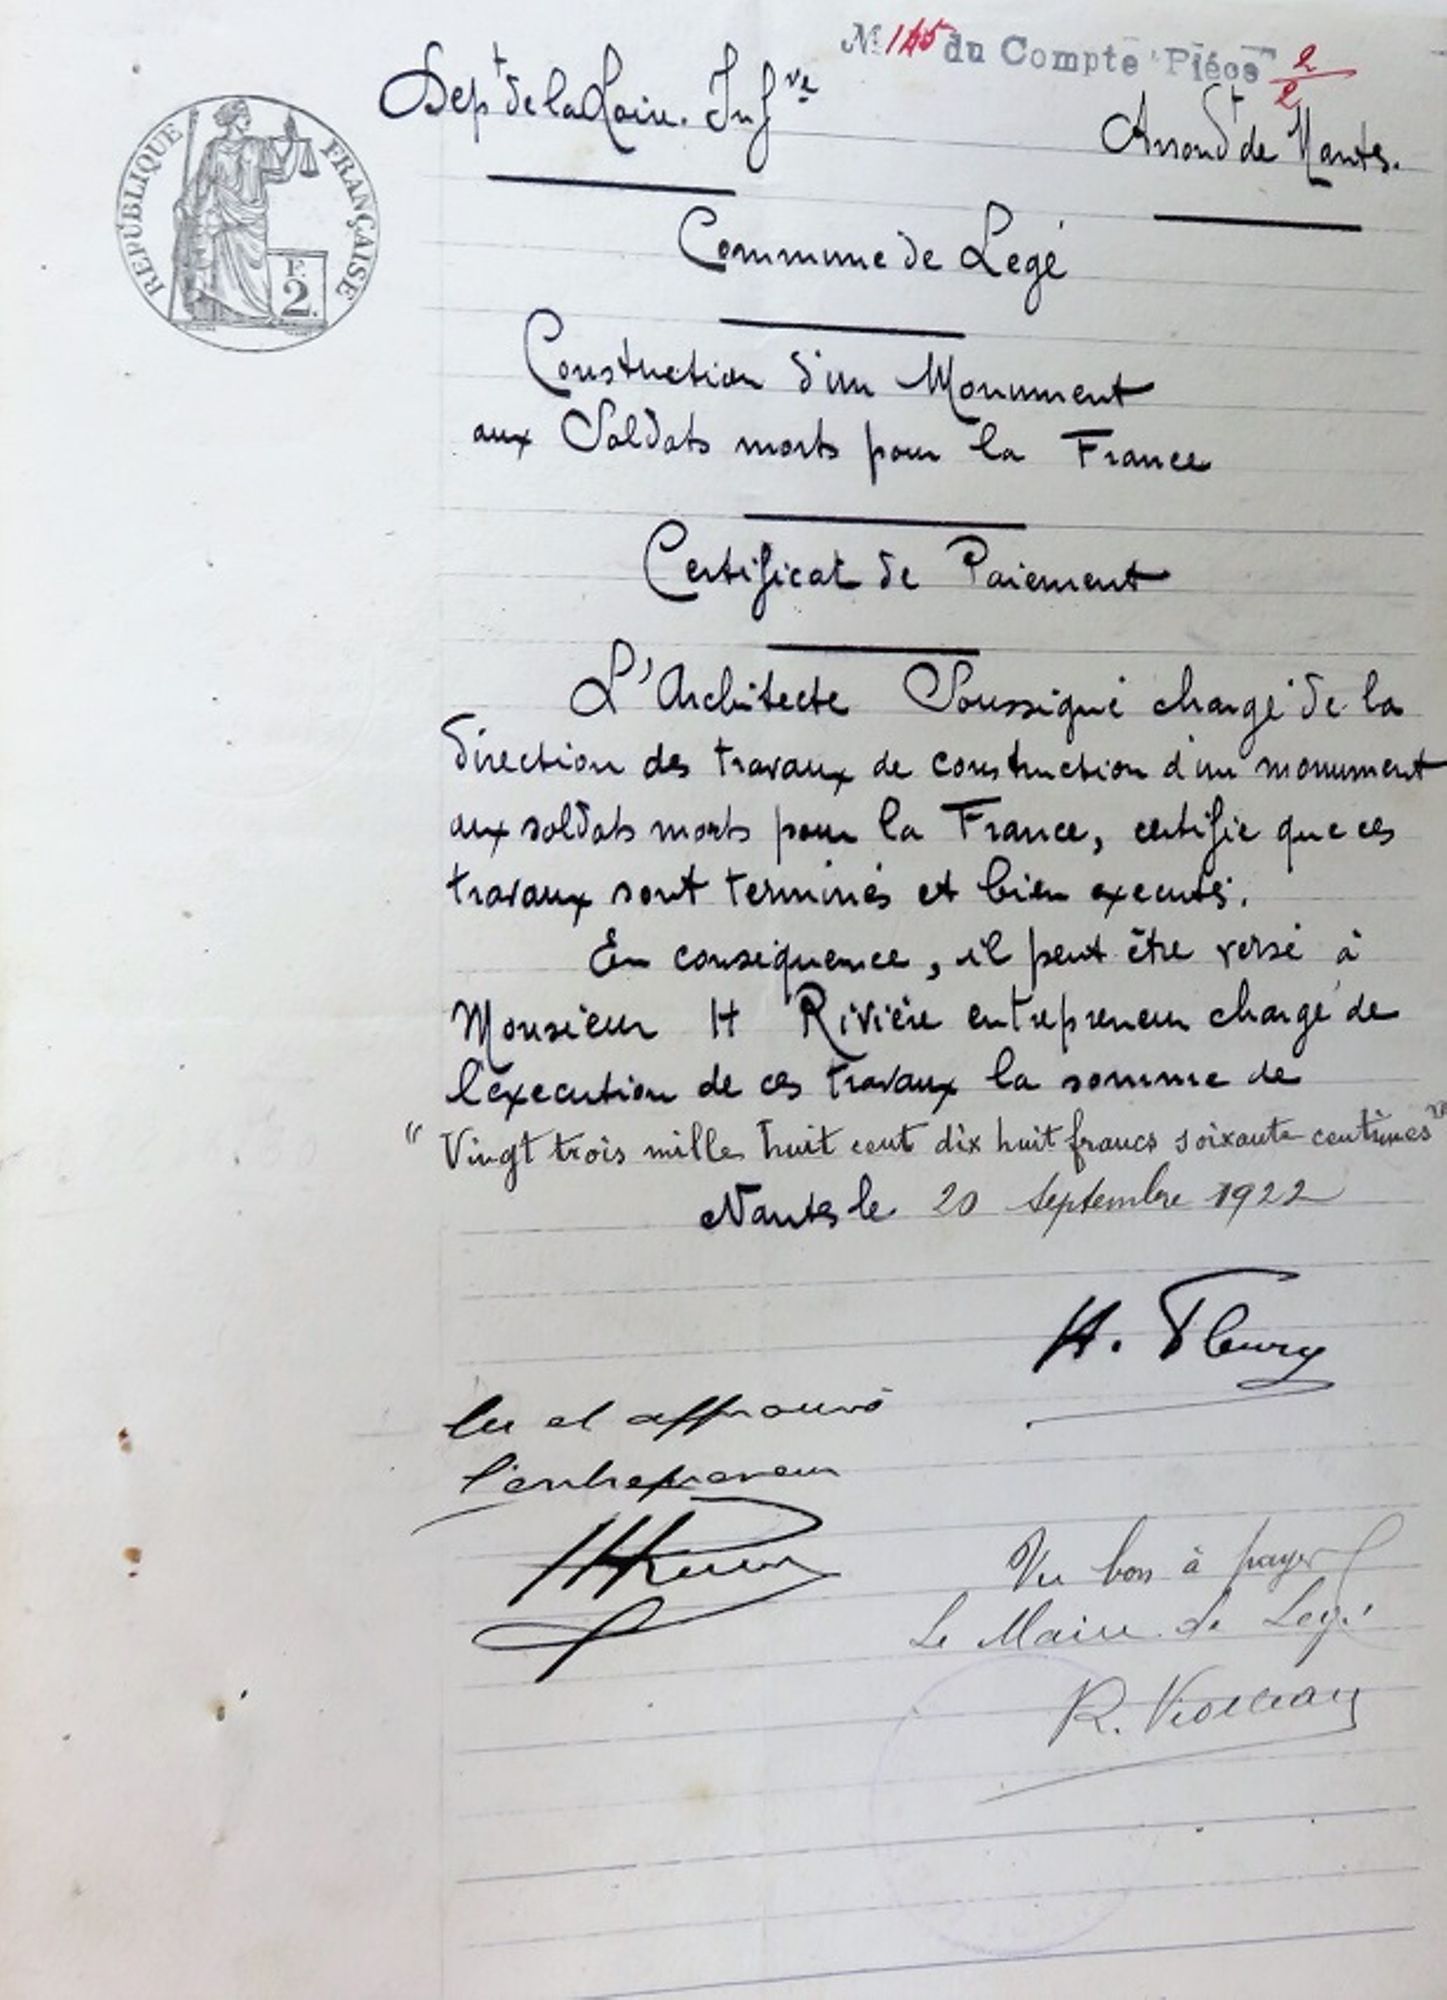 N° 145 du Compte Pièce 2/2
Dept de la Loire. Infre
Arrondt de Nantes.
RÉPUBLIQUE FRANÇAISE
F.
2.
Commune de Legé
Construction d'un Monument
aux Soldats morts pour la France
Certificat de Paiement
L'Architecte Soussigné chargé de la
direction des travaux de construction d'un monument
aux soldats morts pour la France, certifie que ces
travaux sont terminés et bien executés.
En consequence, il peut être versé à
Monsieur H Rivière entrepreneur chargé de
l'execution de ces travaux la somme de
" Vingt trois mille huit cent dix huit francs soixante centimes "
Nantes le 20 septembre 1922
H. Fleury
lu et approuvé
l'entrepreneur
Vu bon à payer
Le Maire de Legé